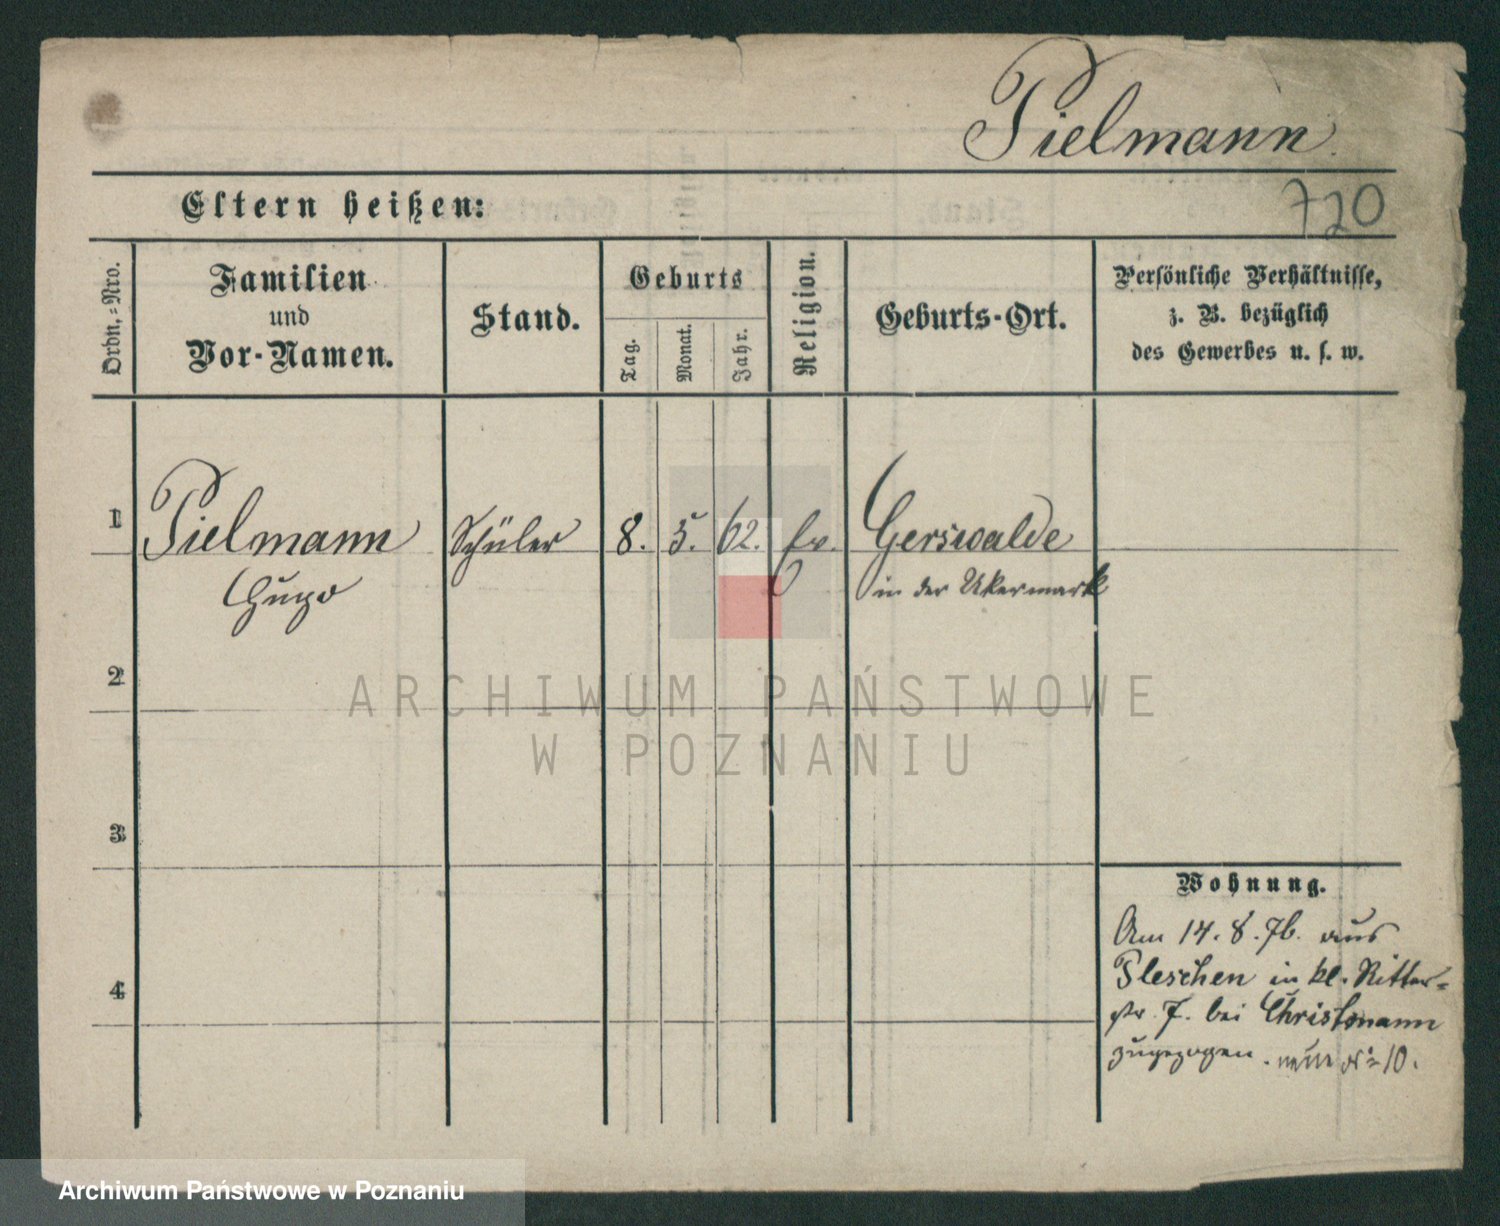 Pielmann.
Eltern heißen:
720
Ordn.=Nro.
Familien
und
Vor-Namen.
Stand.
Geburts
Tag.
Monat.
Jahr.
Religion.
Geburts-Ort.
Persönliche Verhältnisse,
z. B. bezüglich
des Gewerbes u. s. w.
1
Pielmann
Hugo
Schüler
8.
5.
62.
ev.
Gerswalde
in der Ukermark
2
ARCHIWUM PAŃSTWOWE
W POZNANIU
3
Wohnung.
Am 14. 8. 76. aus
Pleschen in kl. Ritter=
str. 7. bei Christmann
zugezogen. neue N= 10.
4
Archiwum Państwowe w Poznaniu